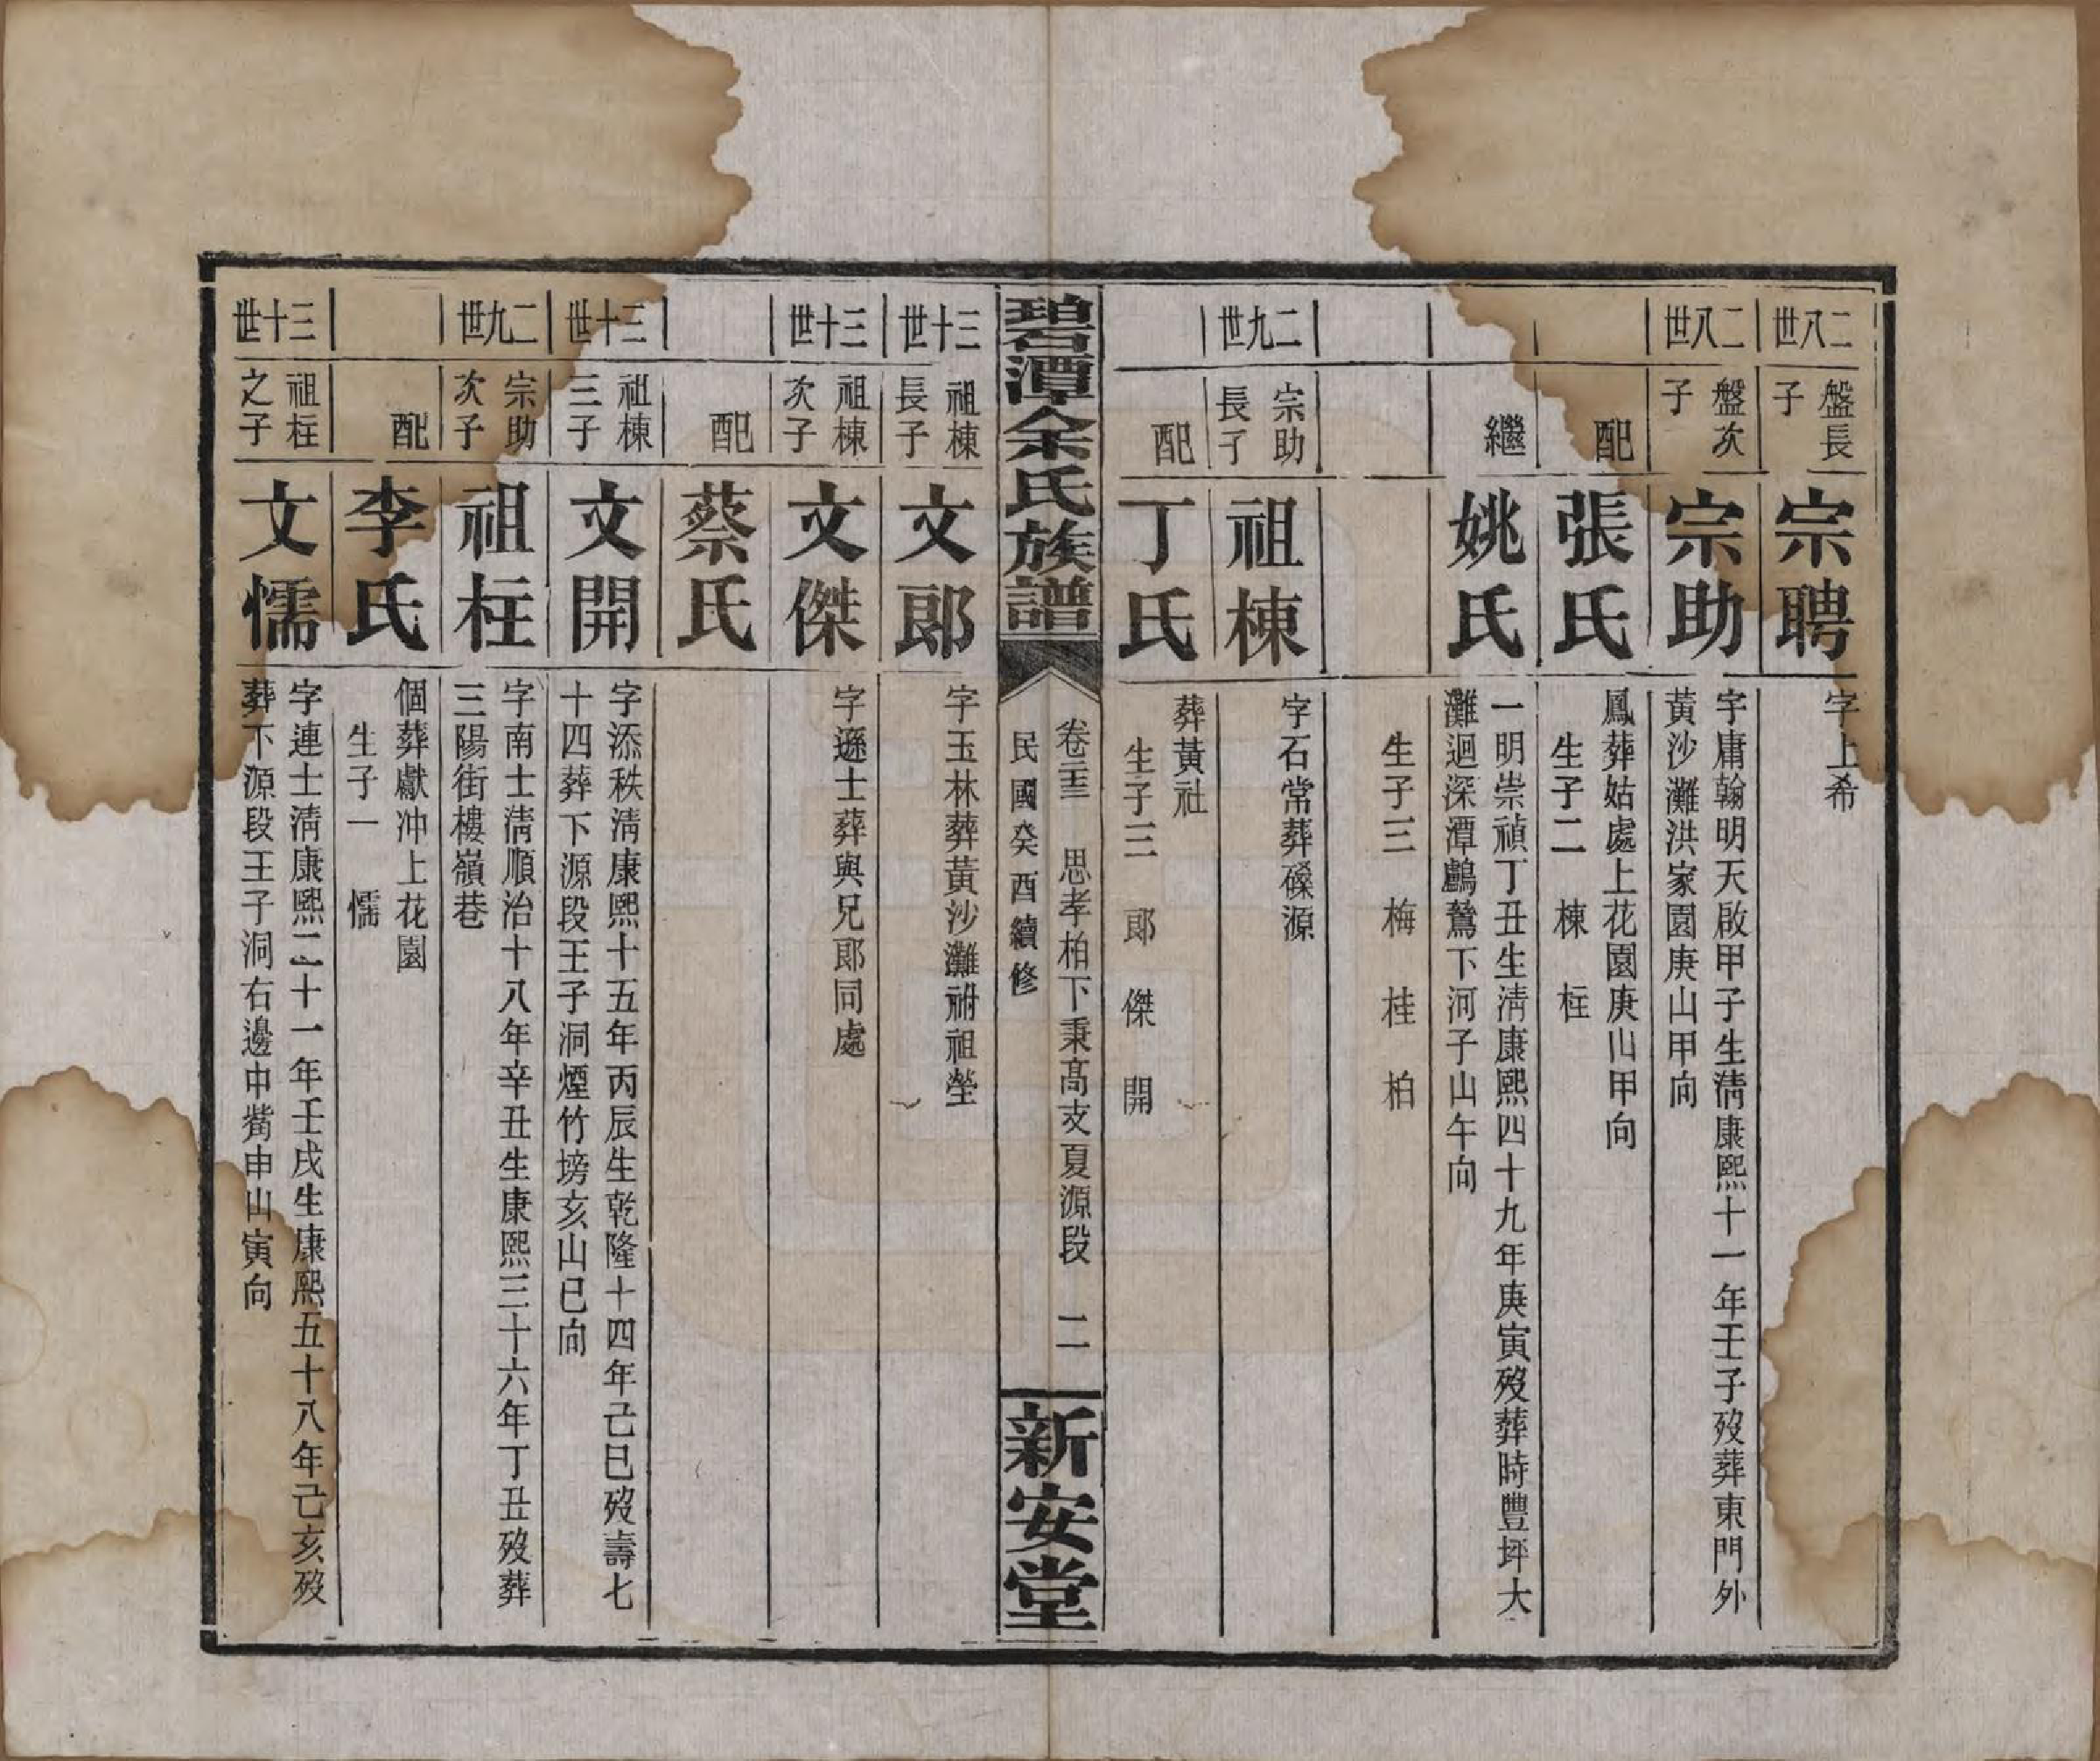 二八世
盤長子
宗聘
字上希
二八世
盤次子
宗助
字庸翰明天啟甲子生淸康熙十一年壬子歿葬東門外
黃沙灘洪家園庚山甲向
配
張氏
鳳葬姑處上花園庚山甲向
生子二 棟 柱
繼
姚氏
一明崇禎丁丑生淸康熙四十九年庚寅歿葬時豐坪大
灘迴深潭鸕鶿下河子山午向
生子三 梅 桂 柏
二九世
宗助長子
祖棟
字石常葬磉源
配
丁氏
葬黃社
生子三 郎 傑 開
碧潭余氏族譜
卷三 思孝柏下秉高支夏源段 二
民國癸酉續修
新安堂
三十世
祖棟長子
文郎
字玉林葬黃沙灘祔祖塋
三十世
祖棟次子
文傑
字遜士葬與兄郎同處
配
蔡氏
三十世
祖棟三子
文開
字添秩淸康熙十五年丙辰生乾隆十四年己巳歿壽七
十四葬下源段王子洞煙竹塝亥山巳向
二九世
宗助次子
祖柱
字南士淸順治十八年辛丑生康熙三十六年丁丑歿葬
三陽街樓嶺巷
配
李氏
個葬獻冲上花園
生子一 懦
三十世
祖柱之子
文懦
字連士淸康熙二十一年壬戌生康熙五十八年己亥歿
葬下源段王子洞右邊中嘴申山寅向